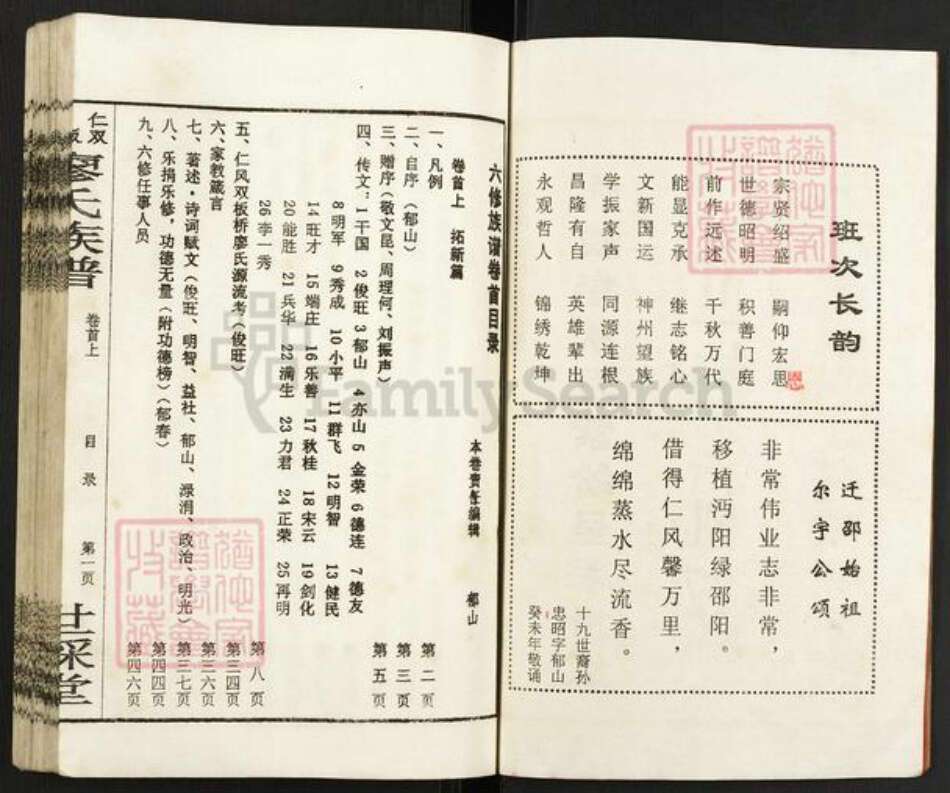 班次长韵
宗贤绍盛 嗣仰宏思
世德昭明 积善门庭
前作远述 千秋万代
能显克承 继志铭心
文新国运 神州望族
学振家声 同源连根
昌隆有自 英雄辈出
永观哲人 锦绣乾坤
迁邵始祖
尔宇公颂
非常伟业志非常，
移植沔阳绿邵阳。
借得仁风馨万里，
绵绵蒸水尽流香。
十九世裔孙
忠昭字郁山
癸未年敬诵
六修族谱卷首目录
本卷责任编辑 郁山
卷首上 拓新篇
一、凡例 第二页
二、自序（郁山） 第三页
三、赠序（敬文昆、周理何、刘振声） 第五页
四、传文：1干国 2俊旺 3郁山 4亦山 5金荣 6德连 7德友
8明军 9秀成 10小平 11群飞 12明智 13健民
14旺才 15端庄 16乐善 17秋桂 18宋云 19剑化
20能胜 21兵华 22满生 23力君 24正荣 25再明
26李一秀 第八页
五、仁风双板桥廖氏源流考（俊旺） 第三四页
六、家教箴言 第三六页
七、著述·诗词赋文（俊旺、明智、益社、郁山、渌涓、政治、明光） 第三七页
八、乐捐乐修，功德无量（附功德榜）（郁春） 第四四页
九、六修任事人员 第四六页
仁双
廖氏族谱
卷首上
目录
第一页
廿采堂
FamilySearch